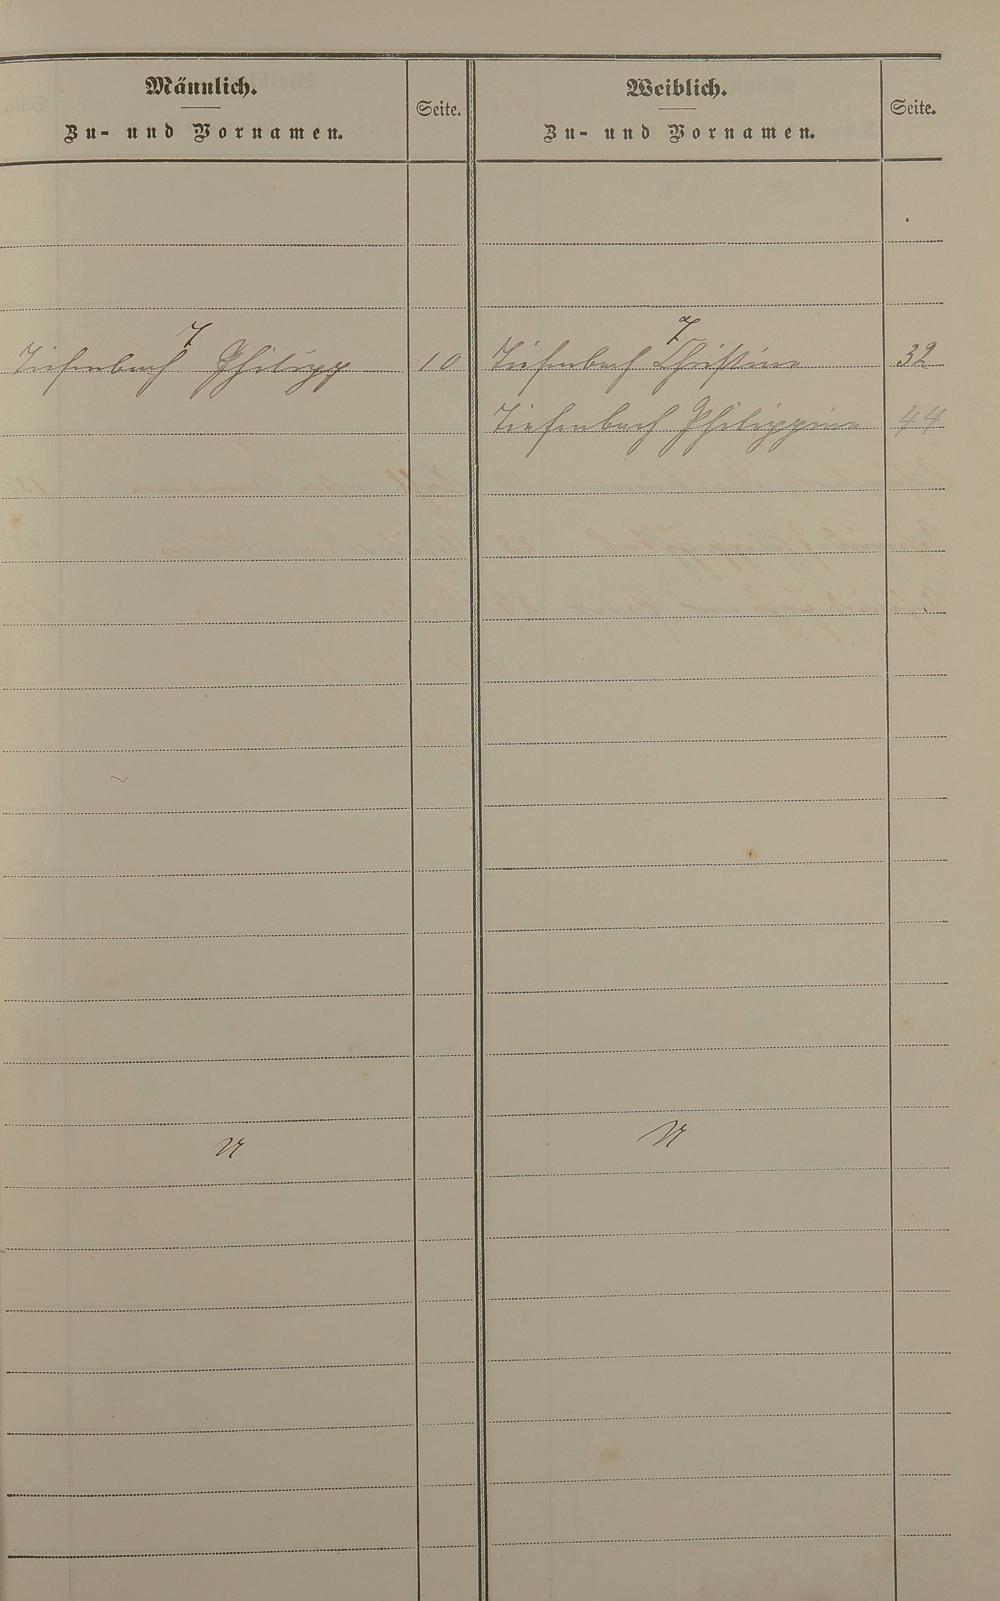 Männlich.
Zu- und Vornamen.
Seite.
Weiblich.
Zu- und Vornamen.
Seite.
T
Tiefenbach Philipp 10
T
Tiefenbach Christine 32
Tiefenbach Philippine 44
U
U